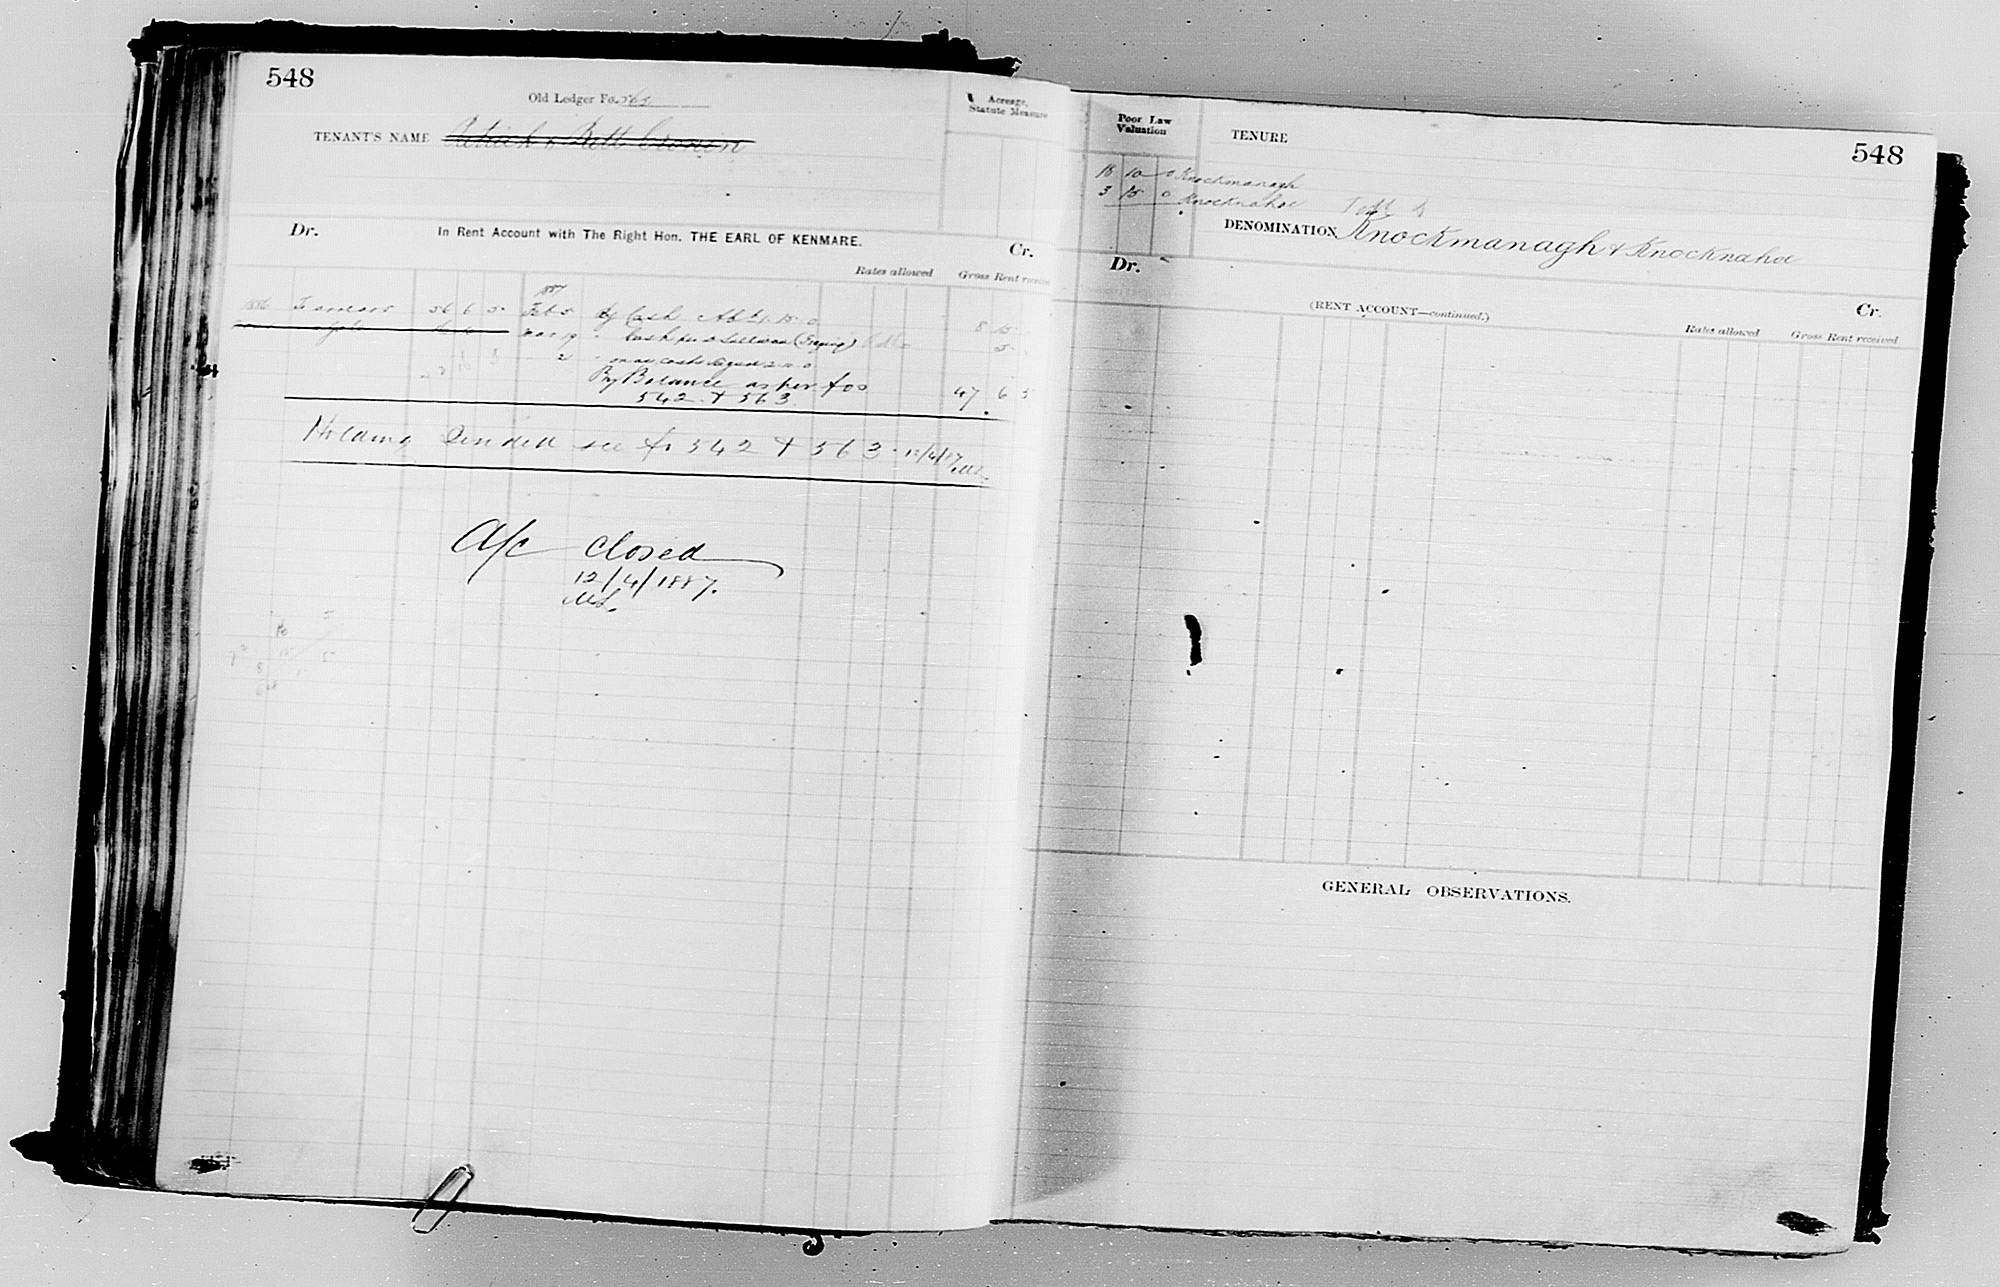 548
Old Ledger Fo.
TENANT'S NAME Patrick & Bett Cronin
Acreage, Statute Measure
Dr. In Rent Account with The Right Hon. THE EARL OF KENMARE. Cr.
Rates allowed Gross Rent received
1887
1886 To arrears 56 6 5 Feb 5 By Cash 8 15
Mar 19 " Cash per 5
By Balance as per fos 47 6 5
542 & 563
Holding divided see fo 542 & 563. 12/4/87
A/c closed
12/4/1887.
Poor Law Valuation
TENURE
548
15 10 0 Knockmanagh
3 15 0 Knocknahoe
DENOMINATION Knockmanagh & Knocknahoe
Dr. (RENT ACCOUNT—continued.) Cr.
Rates allowed Gross Rent received
GENERAL OBSERVATIONS.